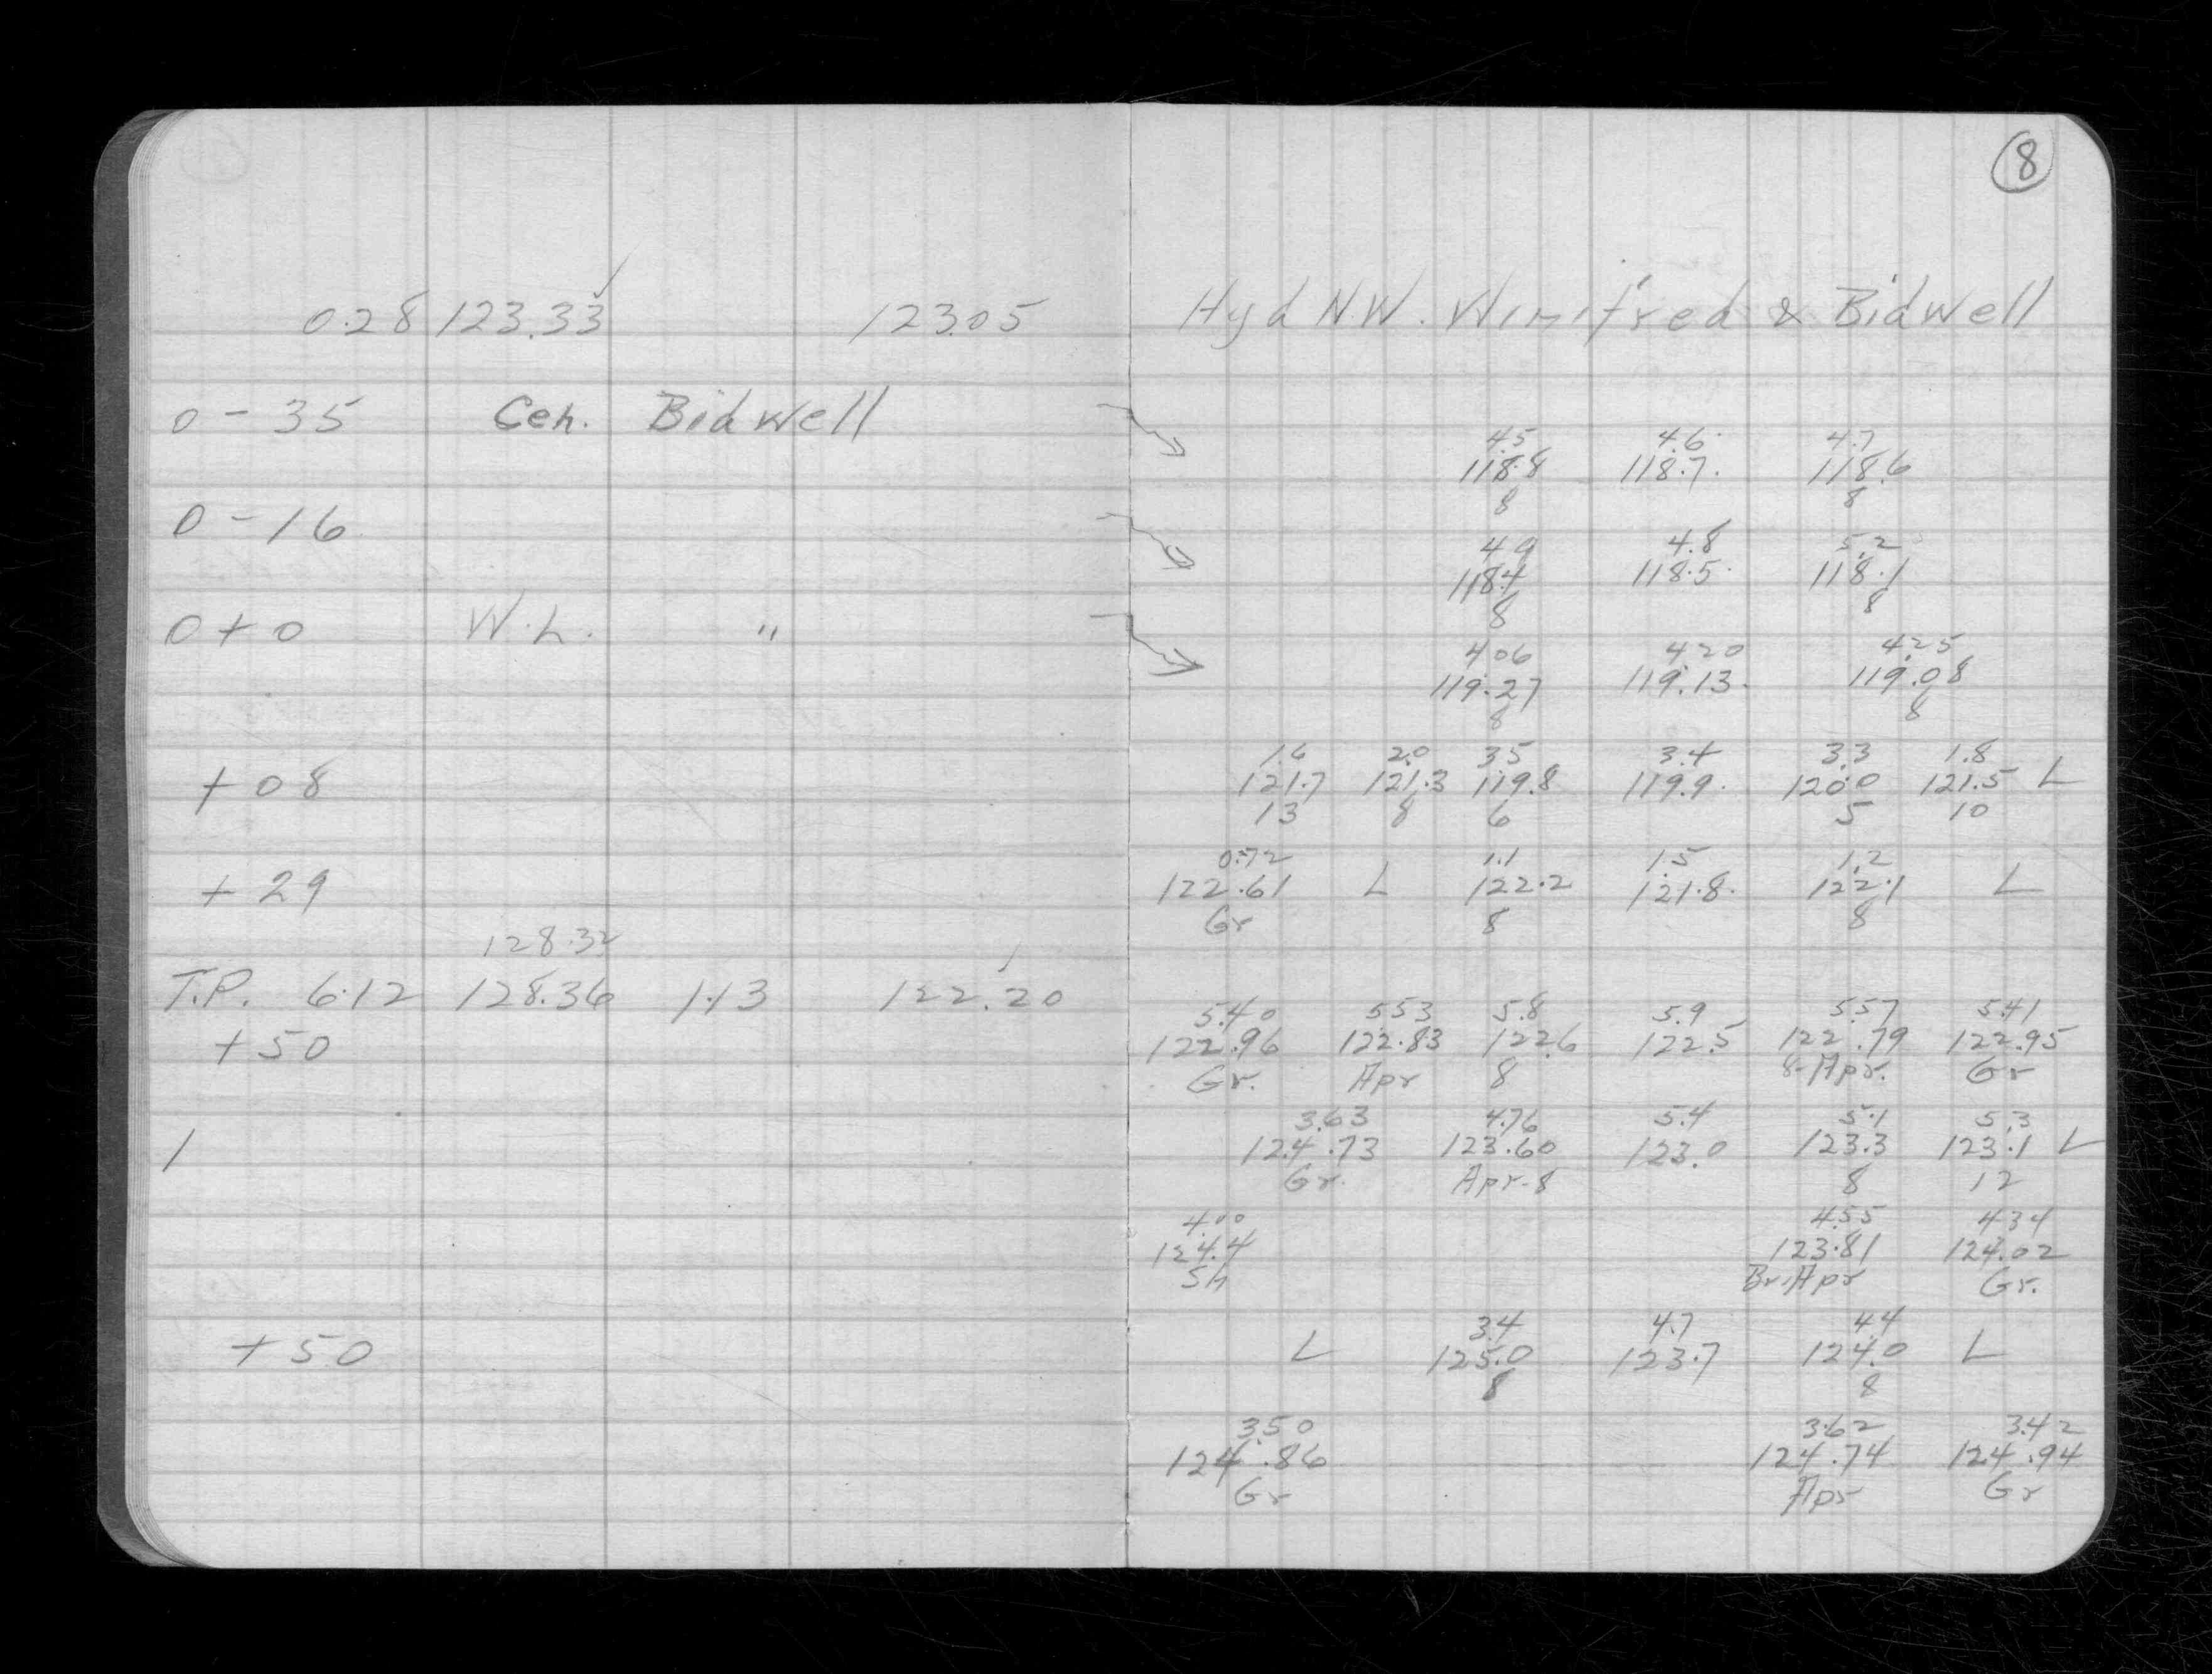 8
0.28 123.33 123.05 Hyd N.W. Winifred & Bidwell
0 - 35 Cen. Bidwell
4.5 4.6 4.7
118.8 118.7 118.6
8 8
0 - 16
4.9 4.8 5.2
118.4 118.5 118.1
8 8
0 + 0 W.L. "
4.06 4.20 4.25
119.27 119.13 119.08
8 8
1.6 2.0 3.5 3.4 3.3 1.8
+ 08 121.7 121.3 119.8 119.9 120.0 121.5 L
13 8 6 5 10
0.72 1.1 1.5 1.2
+ 29 122.61 L 122.2 121.8 122.1 L
Gr 8 8
128.32
T.P. 6.12 128.36 1.13 122.20
5.40 5.53 5.8 5.9 5.57 5.41
+ 50 122.96 122.83 122.6 122.5 122.79 122.95
Gr. Apr 8 8-Apr. Gr
3.63 4.76 5.4 5.1 5.3
1 124.73 123.60 123.0 123.3 123.1 L
Gr. Apr-8 8 12
4.00 4.55 4.34
124.4 123.81 124.02
Sh Br.Apr Gr.
3.4 4.7 4.4
+ 50 L 125.0 123.7 124.0 L
8 8
3.50 3.62 3.42
124.86 124.74 124.94
Gr Apr Gr